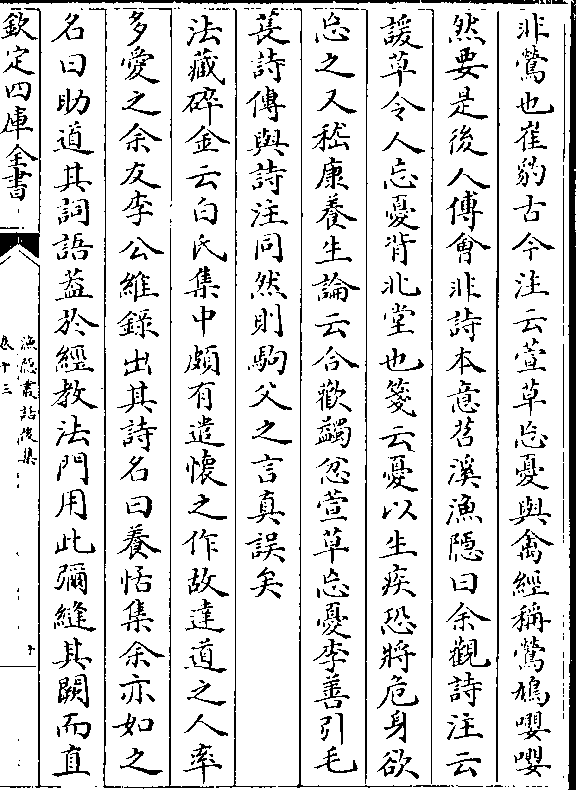 非鶯也崔豹古今注云萱草忘憂與禽經稱鶯鳩嚶嚶
然要是後人傅會非詩本意苕溪漁隠曰余觀詩注云
諼草令人忘憂背北堂也箋云憂以生疾恐將危身欲
忘之又嵇康養生論云合歡蠲忿萱草忘憂李善引毛
萇詩傳與詩注同然則駒父之言真誤矣
法藏碎金云白氏集中頗有遣懷之作故達道之人率
多愛之余友李公維錄出其詩名曰養恬集余亦如之
名曰助道其詞語葢於經教法門用此彌縫其闕而直
欽定四庫全書
漁隠叢話後集
卷十三